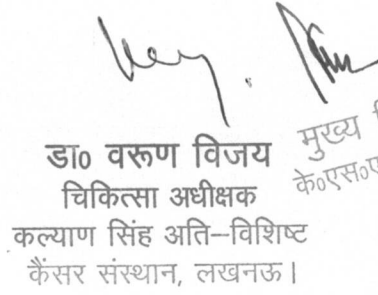 डा० वरूण विजय
चिकित्सा अधीक्षक
कल्याण सिंह अति–विशिष्ट
कैंसर संस्थान, लखनऊ।
मुख्य
के०एस०ए